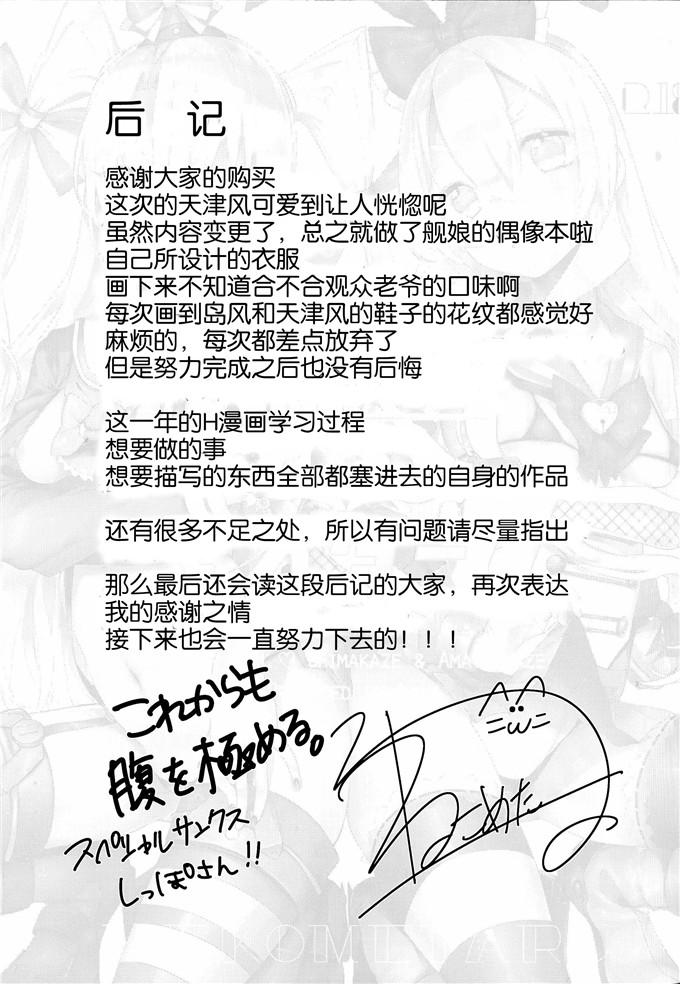 后 记
感谢大家的购买
这次的天津风可爱到让人恍惚呢
虽然内容变更了，总之就做了舰娘的偶像本啦
自己所设计的衣服
画下来不知道合不合观众老爷的口味啊
每次画到岛风和天津风的鞋子的花纹都感觉好
麻烦的，每次都差点放弃了
但是努力完成之后也没有后悔
这一年的H漫画学习过程
想要做的事
想要描写的东西全部都塞进去的自身的作品
还有很多不足之处，所以有问题请尽量指出
那么最后还会读这段后记的大家，再次表达
我的感谢之情
接下来也会一直努力下去的！！！
これからも
腹を極める。
スペシャルサンクス
しっぽさん!!